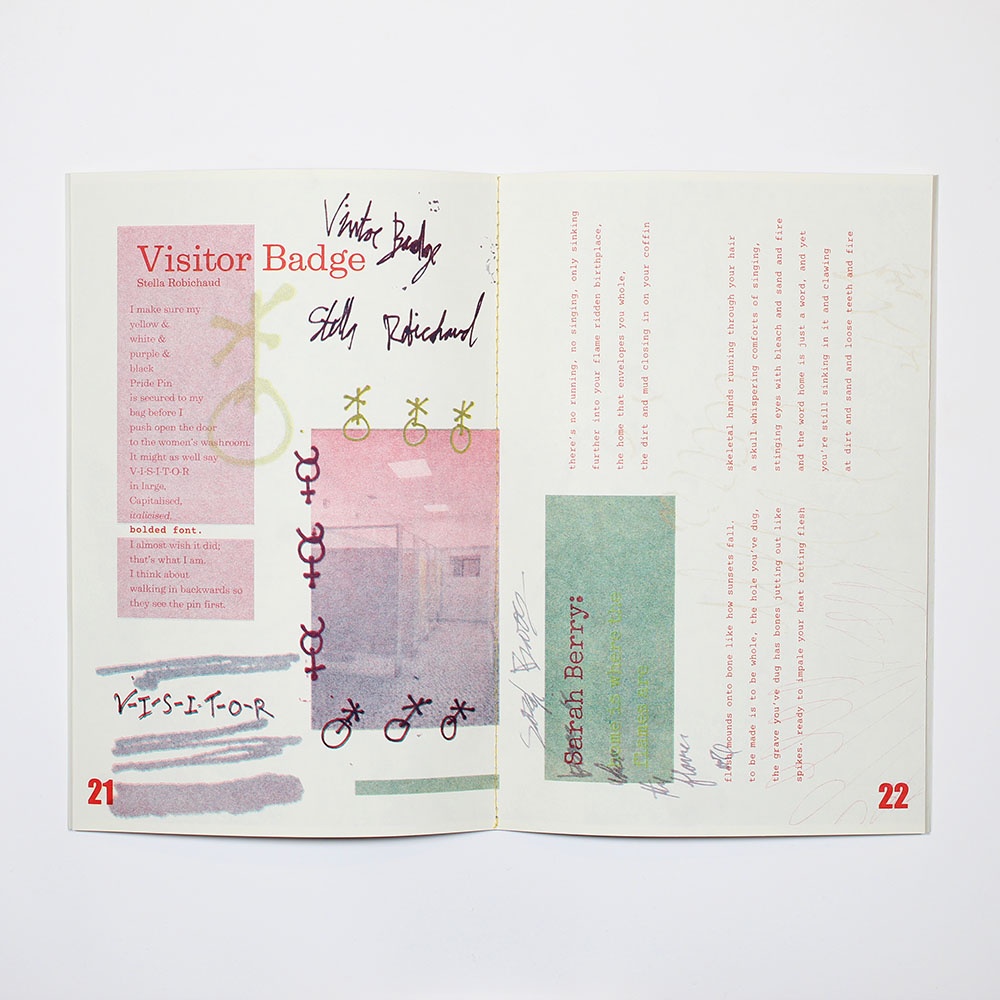 Visitor Badge
Stella Robichaud
I make sure my
yellow &
white &
purple &
black
Pride Pin
is secured to my
bag before I
push open the door
to the women's washroom.
It might as well say
V-I-S-I-T-O-R
in large,
Capitalised,
italicised,
bolded font.
I almost wish it did;
that's what I am.
I think about
walking in backwards so
they see the pin first.
Visitor Badge
Stella Robichaud
V-I-S-I-T-O-R
21
Sarah Berry:
home is where the
flames are
Sarah Berry
home
the
flames
there's no running, no singing, only sinking
further into your flame ridden birthplace,
the home that envelopes you whole,
the dirt and mud closing in on your coffin
flesh mounds onto bone like how sunsets fall.
to be made is to be whole, the hole you've dug,
the grave you've dug has bones jutting out like
spikes. ready to impale your heat rotting flesh
skeletal hands running through your hair
a skull whispering comforts of singing,
stinging eyes with bleach and sand and fire
and the word home is just a word, and yet
you're still sinking in it and clawing
at dirt and sand and loose teeth and fire
22